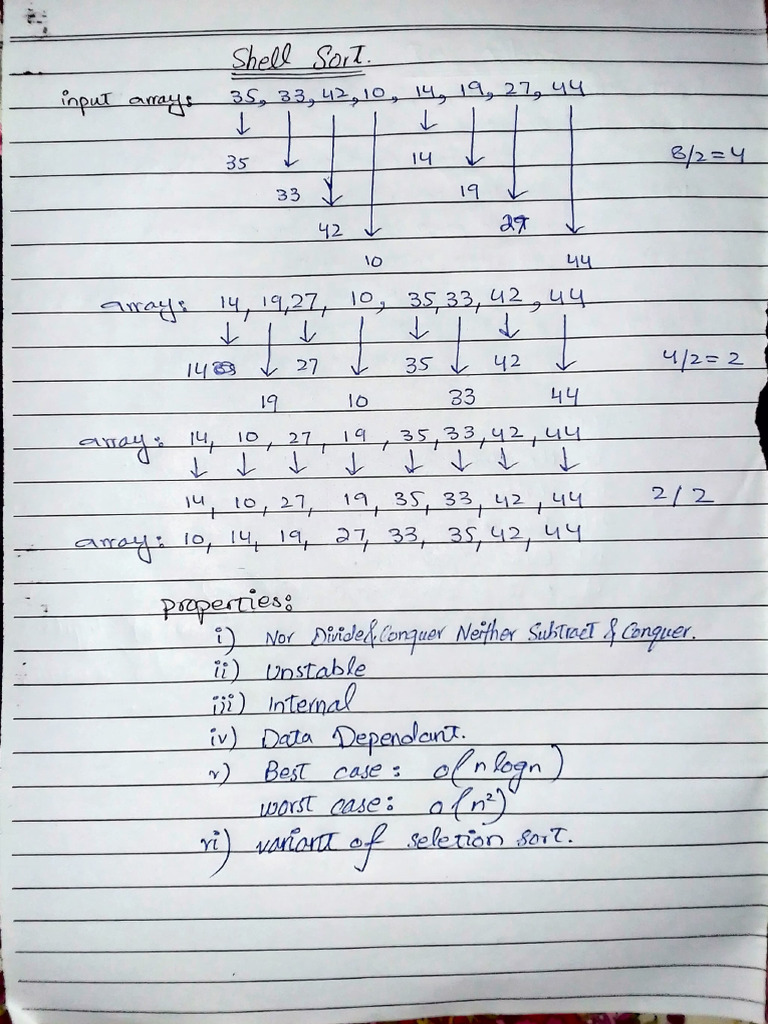 Shell Sort.
input array: 35, 33, 42, 10, 14, 19, 27, 44
35 14 8/2 = 4
33 19
42 27
10 44
array: 14, 19, 27, 10, 35, 33, 42, 44
14 27 35 42 4/2 = 2
19 10 33 44
array: 14, 10, 27, 19, 35, 33, 42, 44
14, 10, 27, 19, 35, 33, 42, 44 2/2
array: 10, 14, 19, 27, 33, 35, 42, 44
properties:
i) Nor Divide & Conquer Neither Subtract & Conquer.
ii) Unstable
iii) Internal
iv) Data Dependant.
v) Best case: o(n logn)
worst case: o(n²)
vi) variant of seletion sort.